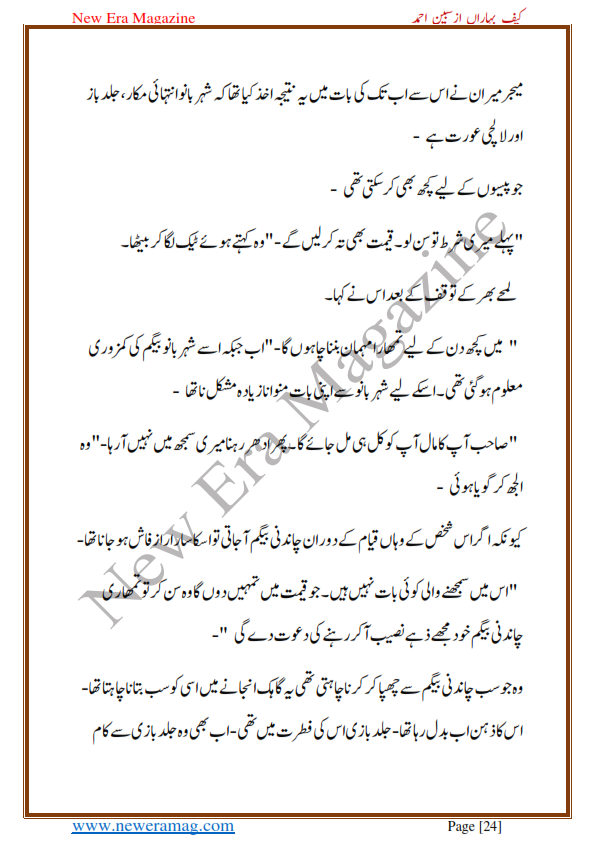 New Era Magazine
کیف بہاراں از سبین احمد
میجر میران نے اس سے اب تک کی بات میں یہ نتیجہ اخذ کیا تھا کہ شہر بانو انتہائی مکار، جلد باز
اور لالچی عورت ہے -
جو پیسوں کے لیے کچھ بھی کر سکتی تھی -
"پہلے میری شرط تو سن لو۔ قیمت بھی تہ کر لیں گے-" وہ کہتے ہوئے ٹیک لگا کر بیٹھا۔
لمحے بھر کے توقف کے بعد اس نے کہا۔
" میں کچھ دن کے لیے تمھارا مہمان بننا چاہوں گا-" اب جبکہ اسے شہر بانو بیگم کی کمزوری
معلوم ہو گئی تھی۔ اسکے لیے شہر بانو سے اپنی بات منوانا زیادہ مشکل نا تھا -
"صاحب آپ کا مال آپ کو کل ہی مل جائے گا۔ پھر ادھر رہنا میری سمجھ میں نہیں آرہا-" وہ
الجھ کر گویا ہوئی -
کیونکہ اگر اس شخص کے وہاں قیام کے دوران چاندنی بیگم آ جاتی تو اسکا سارا راز فاش ہو جانا تھا-
"اس میں سمجھنے والی کوئی بات نہیں ہیں۔ جو قیمت میں تمہیں دوں گا وہ سن کر تو تمھاری
چاندنی بیگم خود مجھے ذہے نصیب آ کر رہنے کی دعوت دے گی "-
وہ جو سب چاندنی بیگم سے چھپا کر کرنا چاہتی تھی یہ گاہک انجانے میں اسی کو سب بتانا چاہتا تھا-
اس کا ذہن اب بدل رہا تھا- جلد بازی اس کی فطرت میں تھی- اب بھی وہ جلد بازی سے کام
New Era Magazine
www.neweramag.com
Page [24]